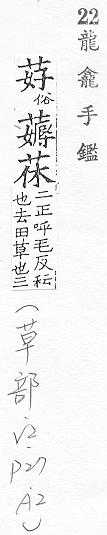 22龍龕手鑑
俗薅茠二正呼毛反耘
也去田草也三
(草部.V2.P27.A2)